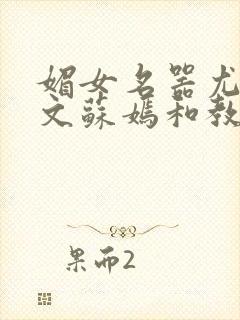 媚女名器尤
文蘇媽和教
果而2